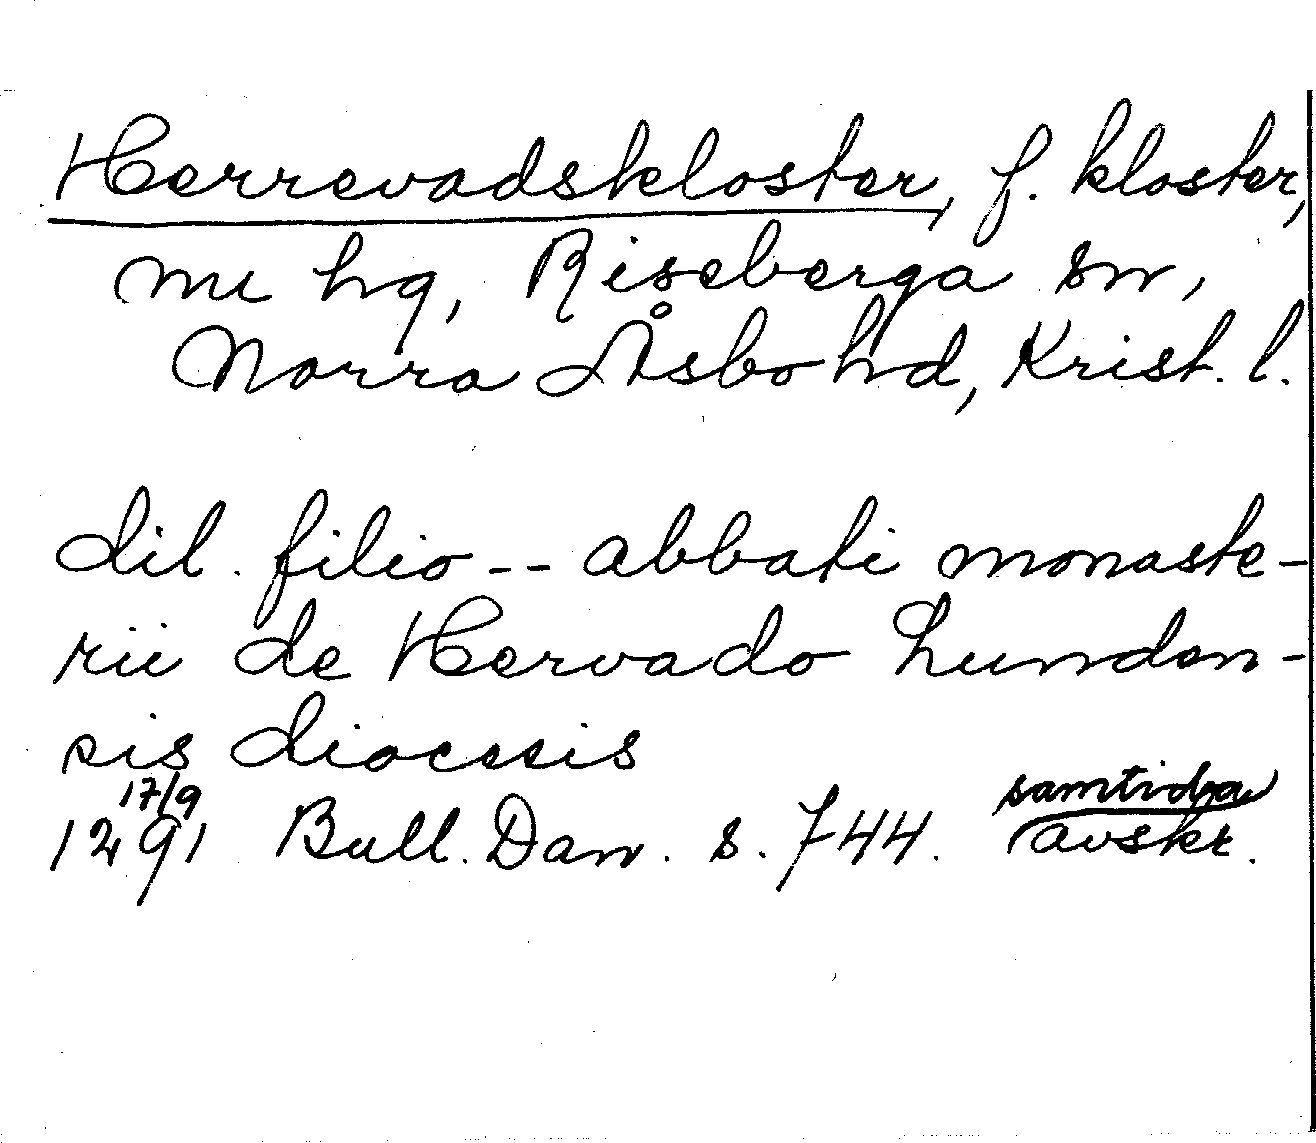 Herrevadskloster, f. kloster,
nu hg, Riseberga sn,
Norra Åsbo hd, Krist. l.
dil. filio -- abbati monaste-
rii de Hervado Lunden-
sis diocesis
17/9 samtidga
1291 Bull. Dan. s. 744. avskr.